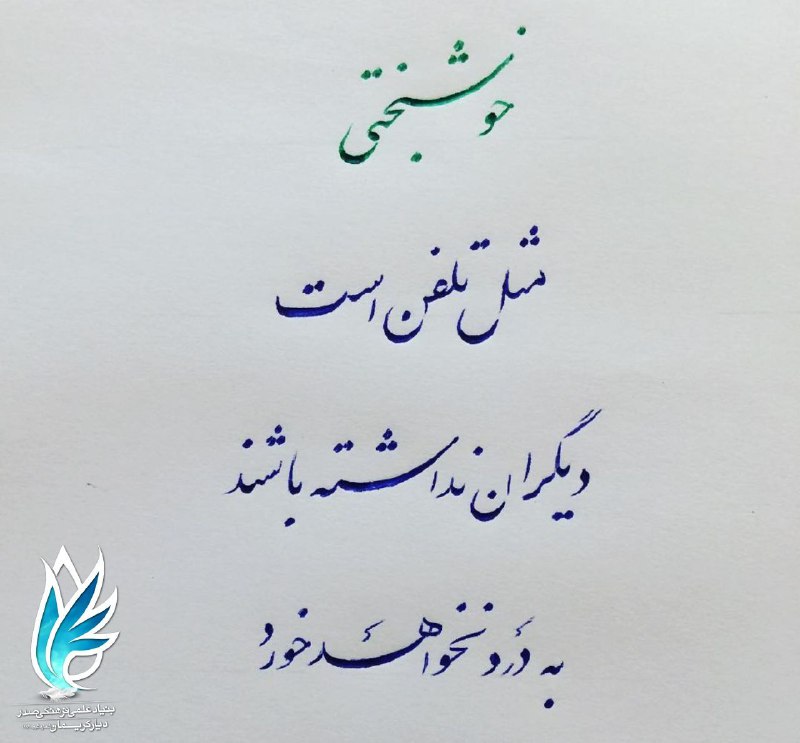 خوشبختی
مثل تلفن است
دیگران نداشته باشند
به دَرد نخواهَد خورد
بنیاد علمی فرهنگی صدر
دیار کریمان